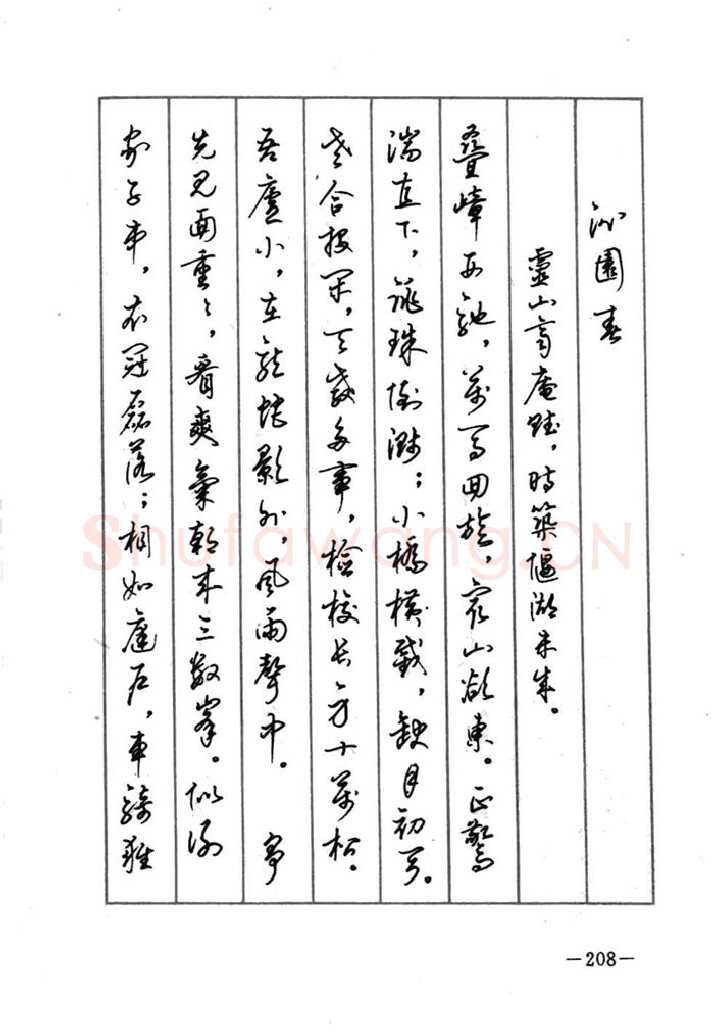 沁園春
靈山齊庵賦，時築偃湖未成。
疊嶂西馳，萬馬回旋，衆山欲東。正驚
湍直下，跳珠倒濺；小橋橫截，缺月初弓。
老合投閑，天教多事，檢校長身十萬松。
吾廬小，在龍蛇影外，風雨聲中。 爭
先見面重重，看爽氣朝來三數峯。似謝
家子弟，衣冠磊落；相如庭户，車騎雍
Shufawang.CN
—208—